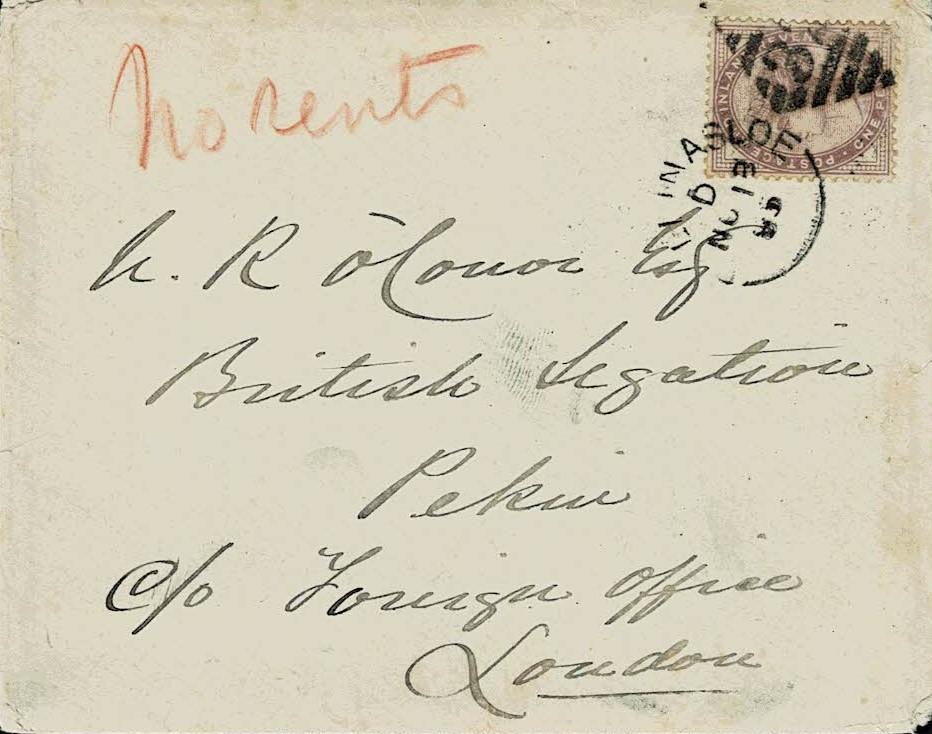 No rents
INLAND REVENUE
POSTAGE
ONE P
INASLOE
D
NO 13
N. R O'Conor Esq
British Legation
Pekin
c/o Foreign Office
London